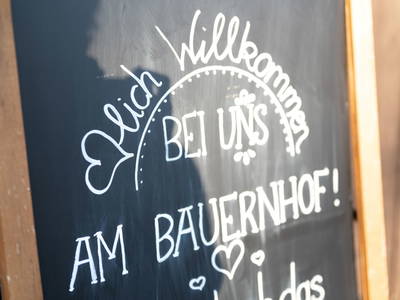 ♡lich Willkommen
BEI UNS
AM BAUERNHOF!
das